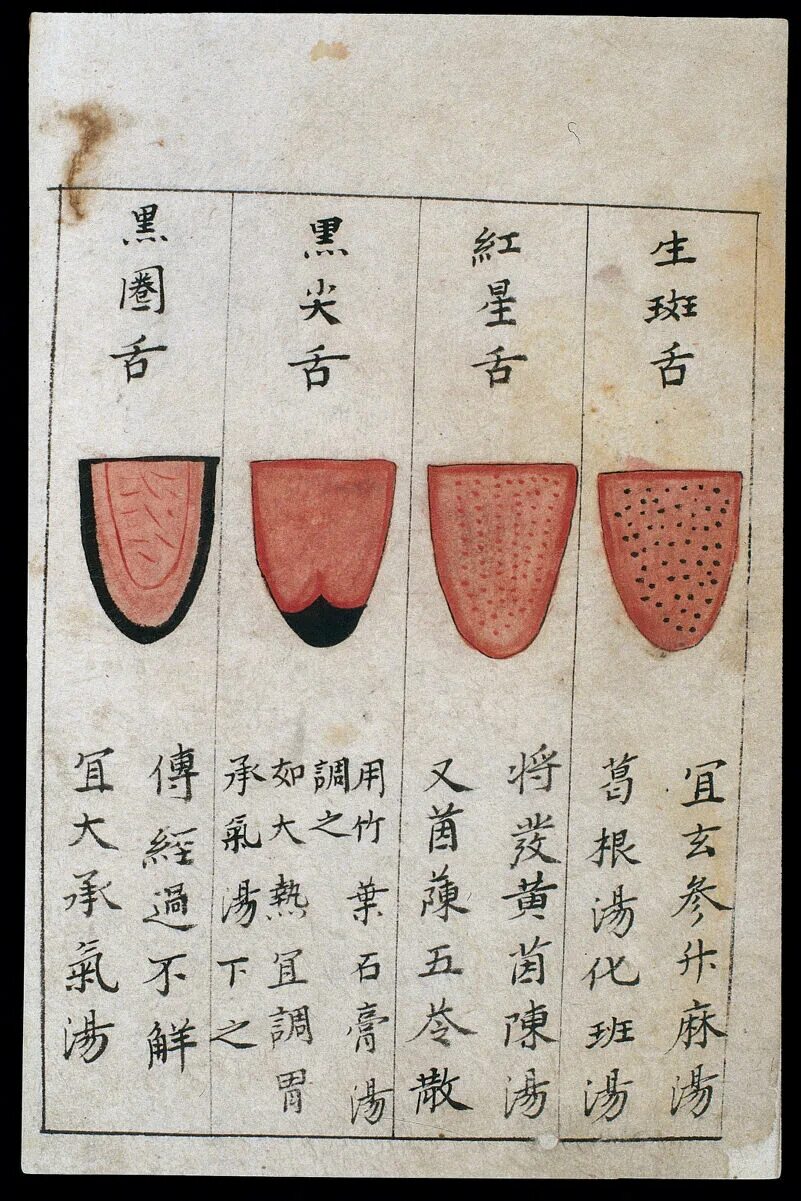 生斑舌
宜玄參升麻湯
葛根湯化班湯
紅星舌
将發黄茵陳湯
又茵蔯五苓散
黒尖舌
用竹葉石膏湯
調之
如大熱宜調胃
承氣湯下之
黒圏舌
傳經過不解
宜大承氣湯